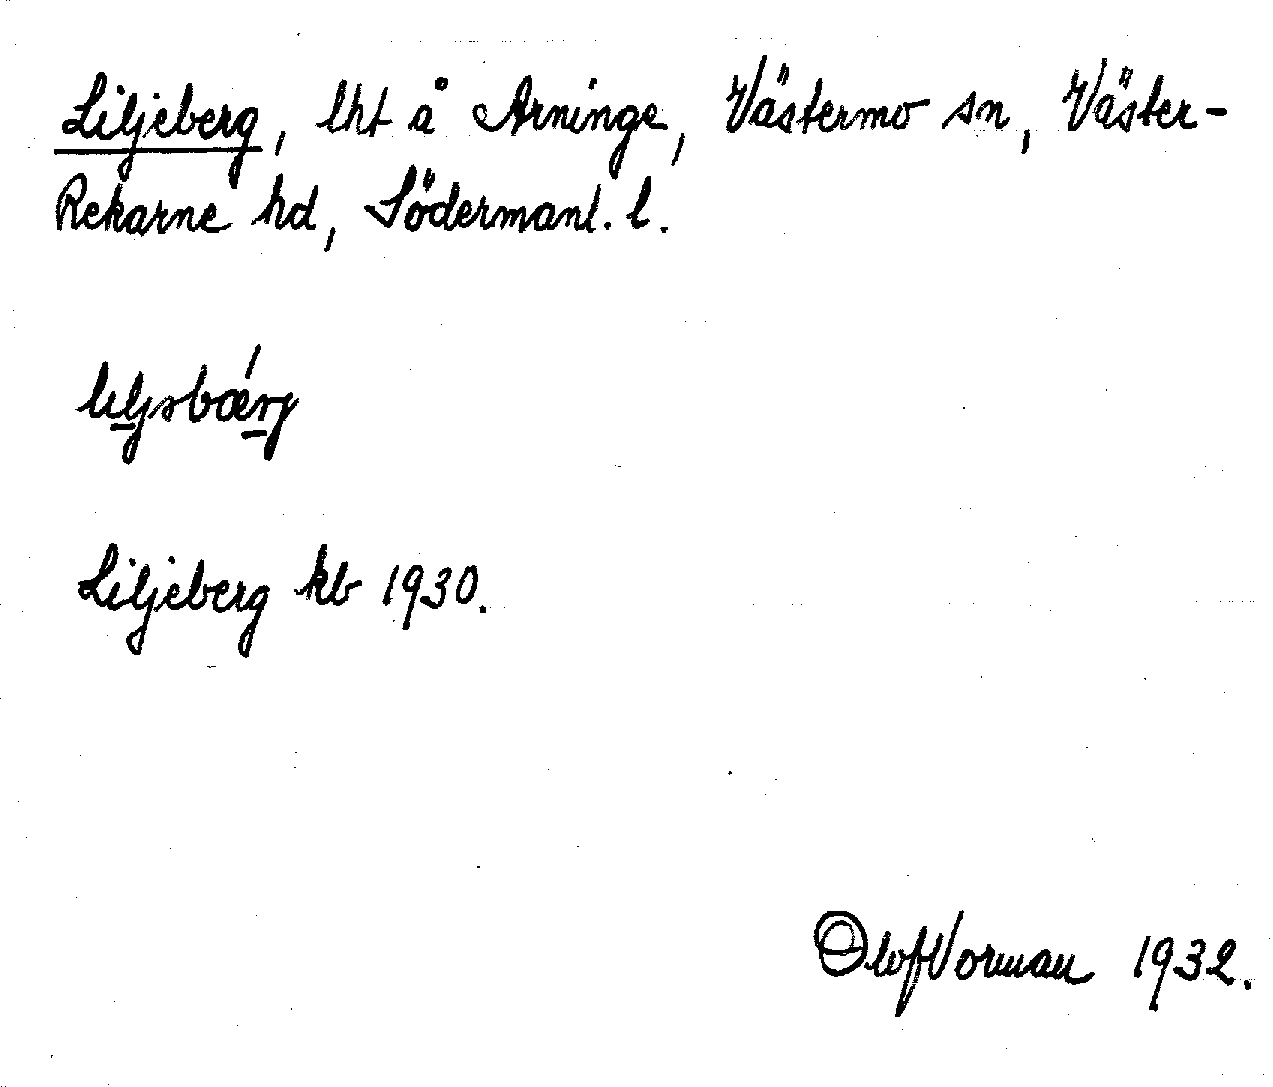 Liljeberg, lht å Arninge, Västermo sn, Väster-
Rekarne hd, Södermanl. l.
Liljeberg kb 1930.
Olof Vorman 1932.